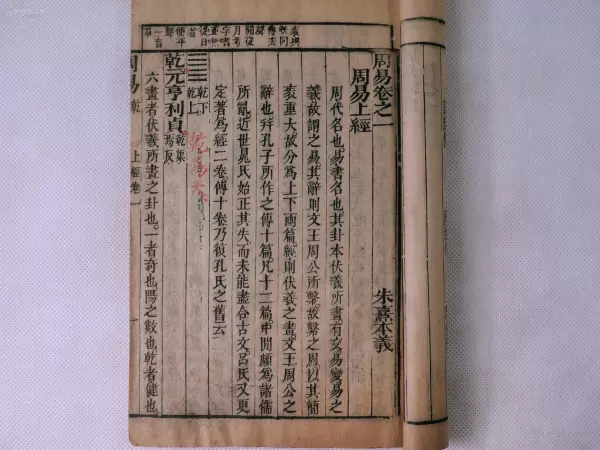 周易卷之一
周易上經
朱熹本義
周代名也易書名也其卦本伏羲所畫有交易變易之
義故謂之易其辭則文王周公所繫故繫之周以其簡
袠重大故分爲上下兩篇經則伏羲之畫文王周公之
辭也幷孔子所作之傳十篇凡十二篇中間頗爲諸儒
所亂近世晁氏始正其失而未能盡合古文呂氏又更
定著爲經二卷傳十卷乃復孔氏之舊云
乾下
乾上
乾爲天
乾元亨利貞
乾渠
焉反
六畫者伏羲所畫之卦也一者奇也陽之數也乾者健也
周易
乾
上經卷一
一